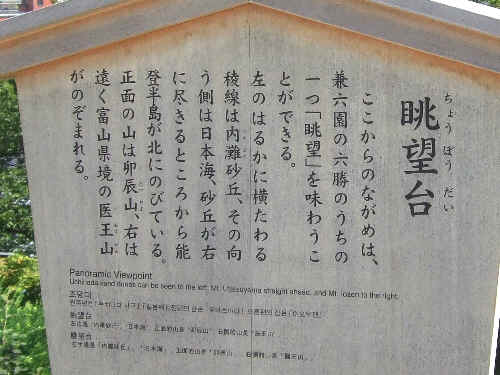 ちょうぼうだい
眺望台
ここからのながめは、
兼六園の六勝のうちの
一つ「眺望」を味わうこ
とができる。
左のはるかに横たわる
稜線は内灘砂丘、その向
う側は日本海、砂丘が右
に尽きるところから能
登半島が北にのびている。
正面の山は卯辰山、右は
遠く富山県境の医王山
がのぞまれる。
Panoramic Viewpoint
Uchinada sand dunes can be seen to the left, Mt. Utatsuyama straight ahead, and Mt. Iozen to the right.
조망대
眺望台